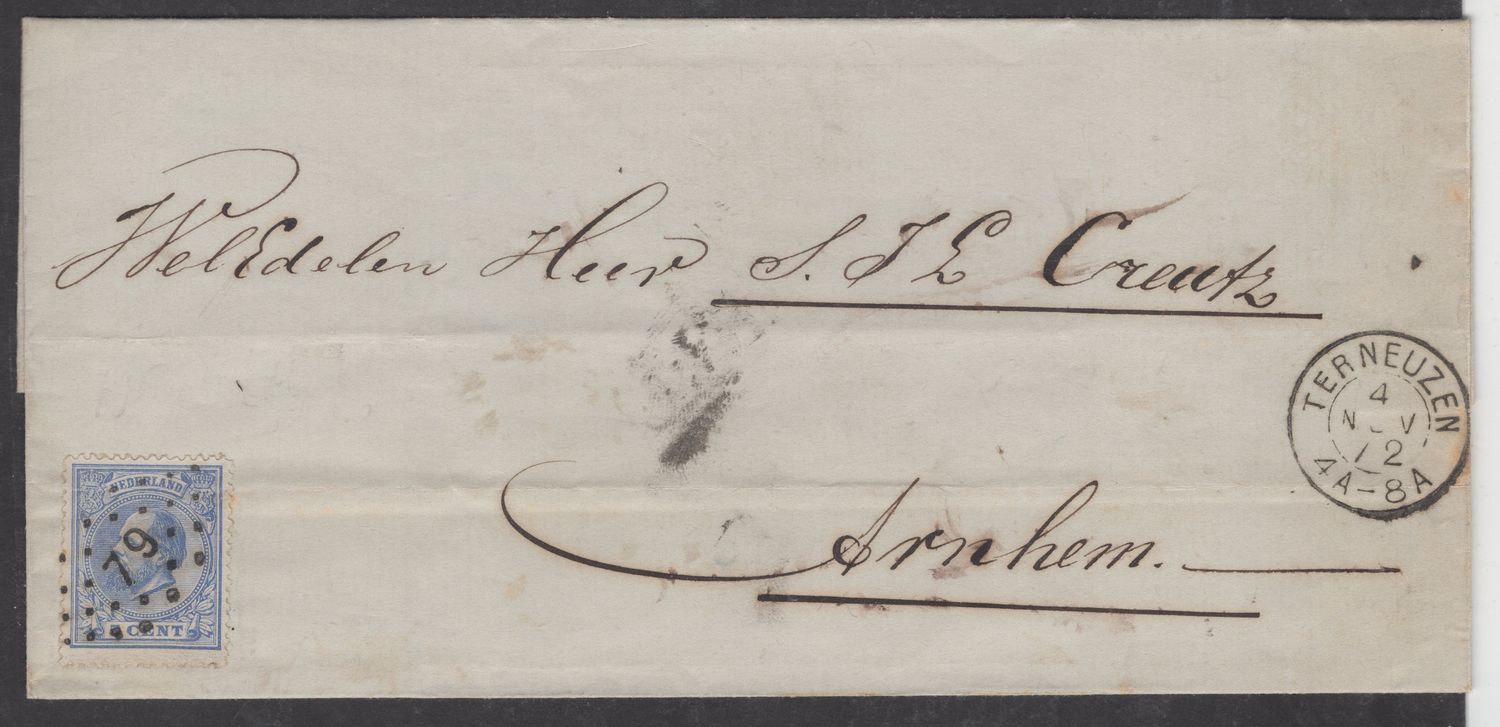 WelEdelen Heer S. J E Creutz
Arnhem.
TERNEUZEN
4
NOV
72
4A-8A
NEDERLAND
79
5 CENT